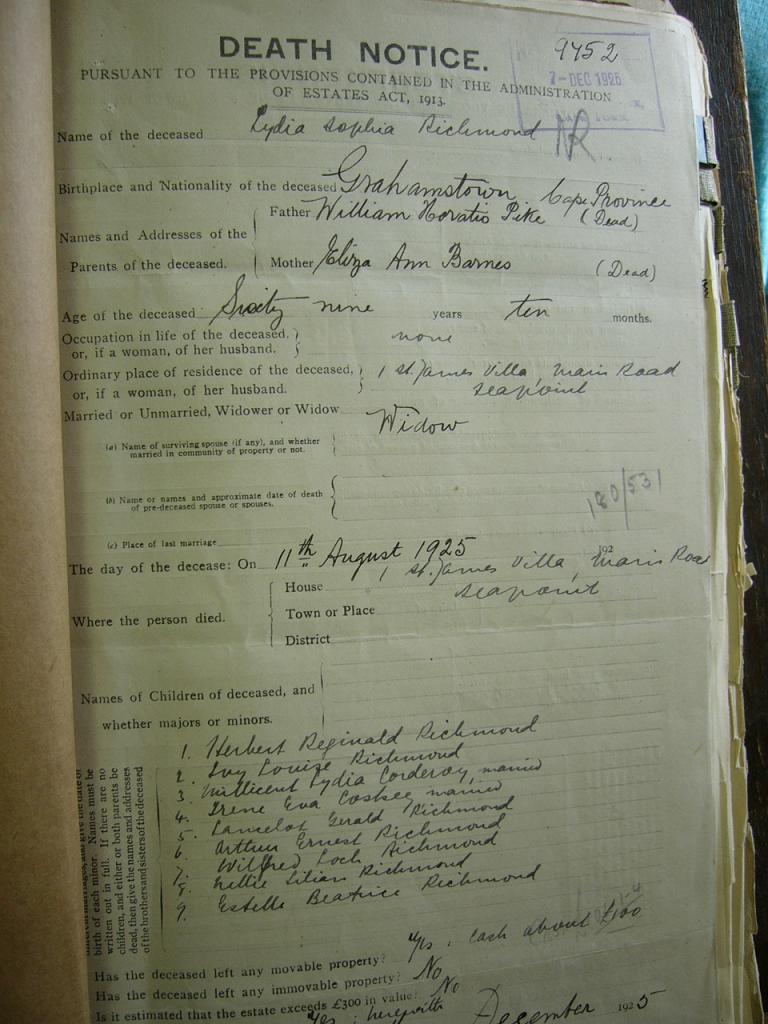 DEATH NOTICE.
9452
7-DEC 1925
PURSUANT TO THE PROVISIONS CONTAINED IN THE ADMINISTRATION
OF ESTATES ACT, 1913.
Name of the deceased Lydia Sophia Richmond NR
Birthplace and Nationality of the deceased Grahamstown. Cape Province
Names and Addresses of the Parents of the deceased.
Father William Horatio Pike (Dead)
Mother Eliza Ann Barnes (Dead)
Age of the deceased Sixty nine years ten months.
Occupation in life of the deceased,
or, if a woman, of her husband. none
Ordinary place of residence of the deceased, 1 St. James Villa, Main Road
or, if a woman, of her husband. Seapoint
Married or Unmarried, Widower or Widow Widow
(a) Name of surviving spouse (if any), and whether
married in community of property or not.
(b) Name or names and approximate date of death
of pre-deceased spouse or spouses.
180/531
(c) Place of last marriage
The day of the decease: On 11th August 1925 192
Where the person died.
House 1 St. James Villa, Main Road
Seapoint
Town or Place
District
Names of Children of deceased, and
whether majors or minors.
1. Herbert Reginald Richmond
2. Ivy Louise Richmond
3. Millicent Lydia Corderoy, married
4. Irene Eva Coskee, married
5. Lancelot Gerald Richmond
6. Arthur Ernest Richmond
7. Wilfred Loch Richmond
8. Nellie Lilian Richmond
9. Estelle Beatrice Richmond
birth of each minor. Names must be
written out in full. If there are no
children, and either or both parents be
dead, then give the names and addresses
of the brothers and sisters of the deceased
Has the deceased left any movable property? Yes, Cash about £100
Has the deceased left any immovable property? No
Is it estimated that the estate exceeds £300 in value? No
Yes; herewith
December 1925